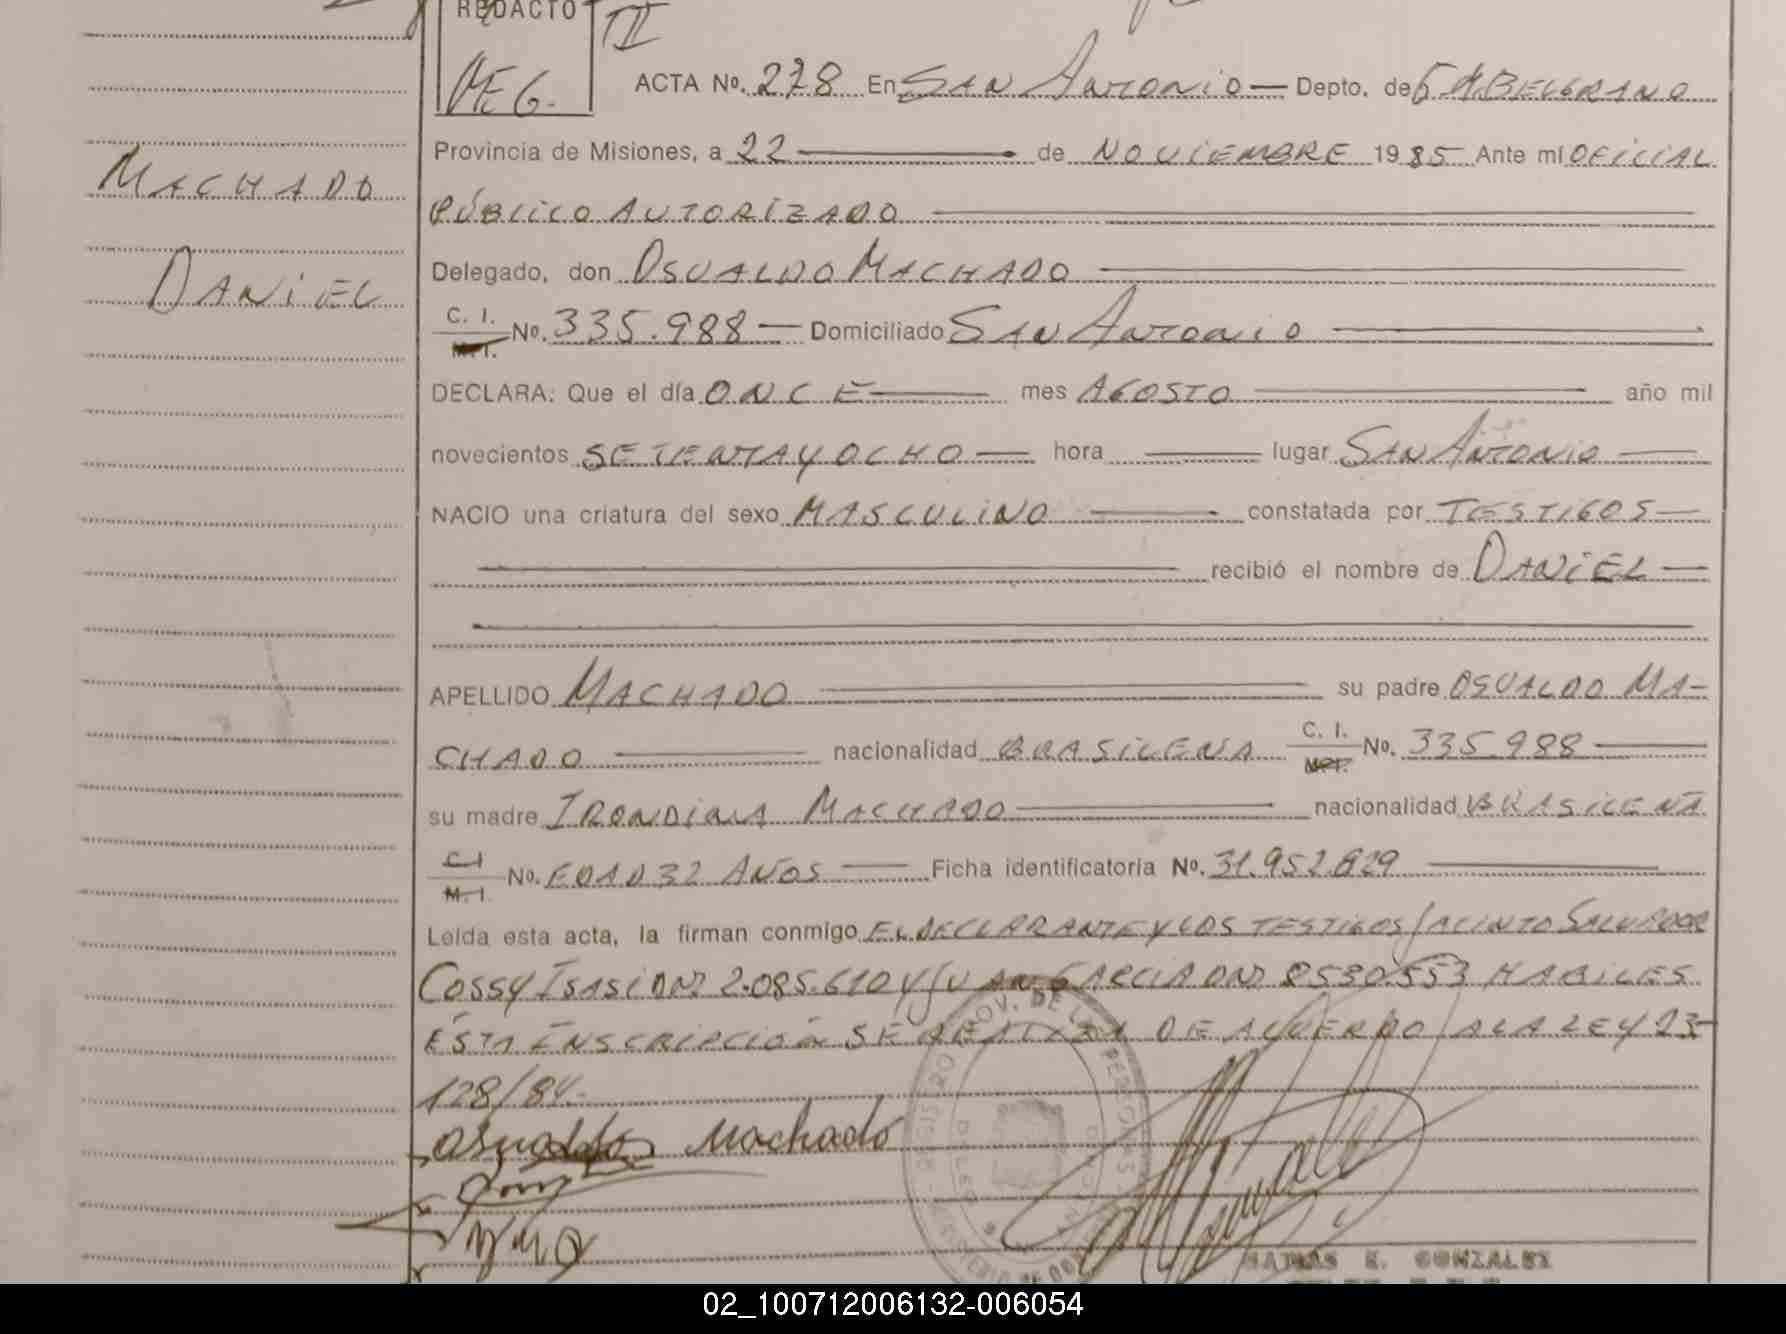 REDACTO
II
ACTA No. 278 En SAN ANTONIO — Depto. de G M BELGRANO
Provincia de Misiones, a 22 — de NOVIEMBRE 1985 Ante mí OFICIAL
PÚBLICO AUTORIZADO
MACHADO
DANIEL
Delegado, don OSVALDO MACHADO
C. I.
M. I. No. 335.988 — Domiciliado SAN ANTONIO
DECLARA: Que el día ONCE — mes AGOSTO — año mil
novecientos SETENTA Y OCHO — hora — lugar SAN ANTONIO —
NACIO una criatura del sexo MASCULINO — constatada por TESTIGOS —
recibió el nombre de DANIEL —
APELLIDO MACHADO — su padre OSVALDO MA-
CHADO — nacionalidad BRASILEÑA C. I. M. I. No. 335.988 —
su madre IRONDINA MACHADO — nacionalidad BRASILEÑA
C. I.
M. I. No. EDAD 32 AÑOS — Ficha identificatoria No. 31.952.829 —
Leída esta acta, la firman conmigo EL DECLARANTE Y LOS TESTIGOS JACINTO SALVADOR
COSSY ISASI DNI 2.085.610 Y JUAN GARCIA DNI 8530.553 HABILES
ÉSTA INSCRIPCIÓN SE REALIZA DE ACUERDO A LA LEY 23-
128/84.-
Osvaldo Machado
REGISTRO PROV. DE LAS PERSONAS
MATIAS E. GONZALEZ
02_100712006132-006054